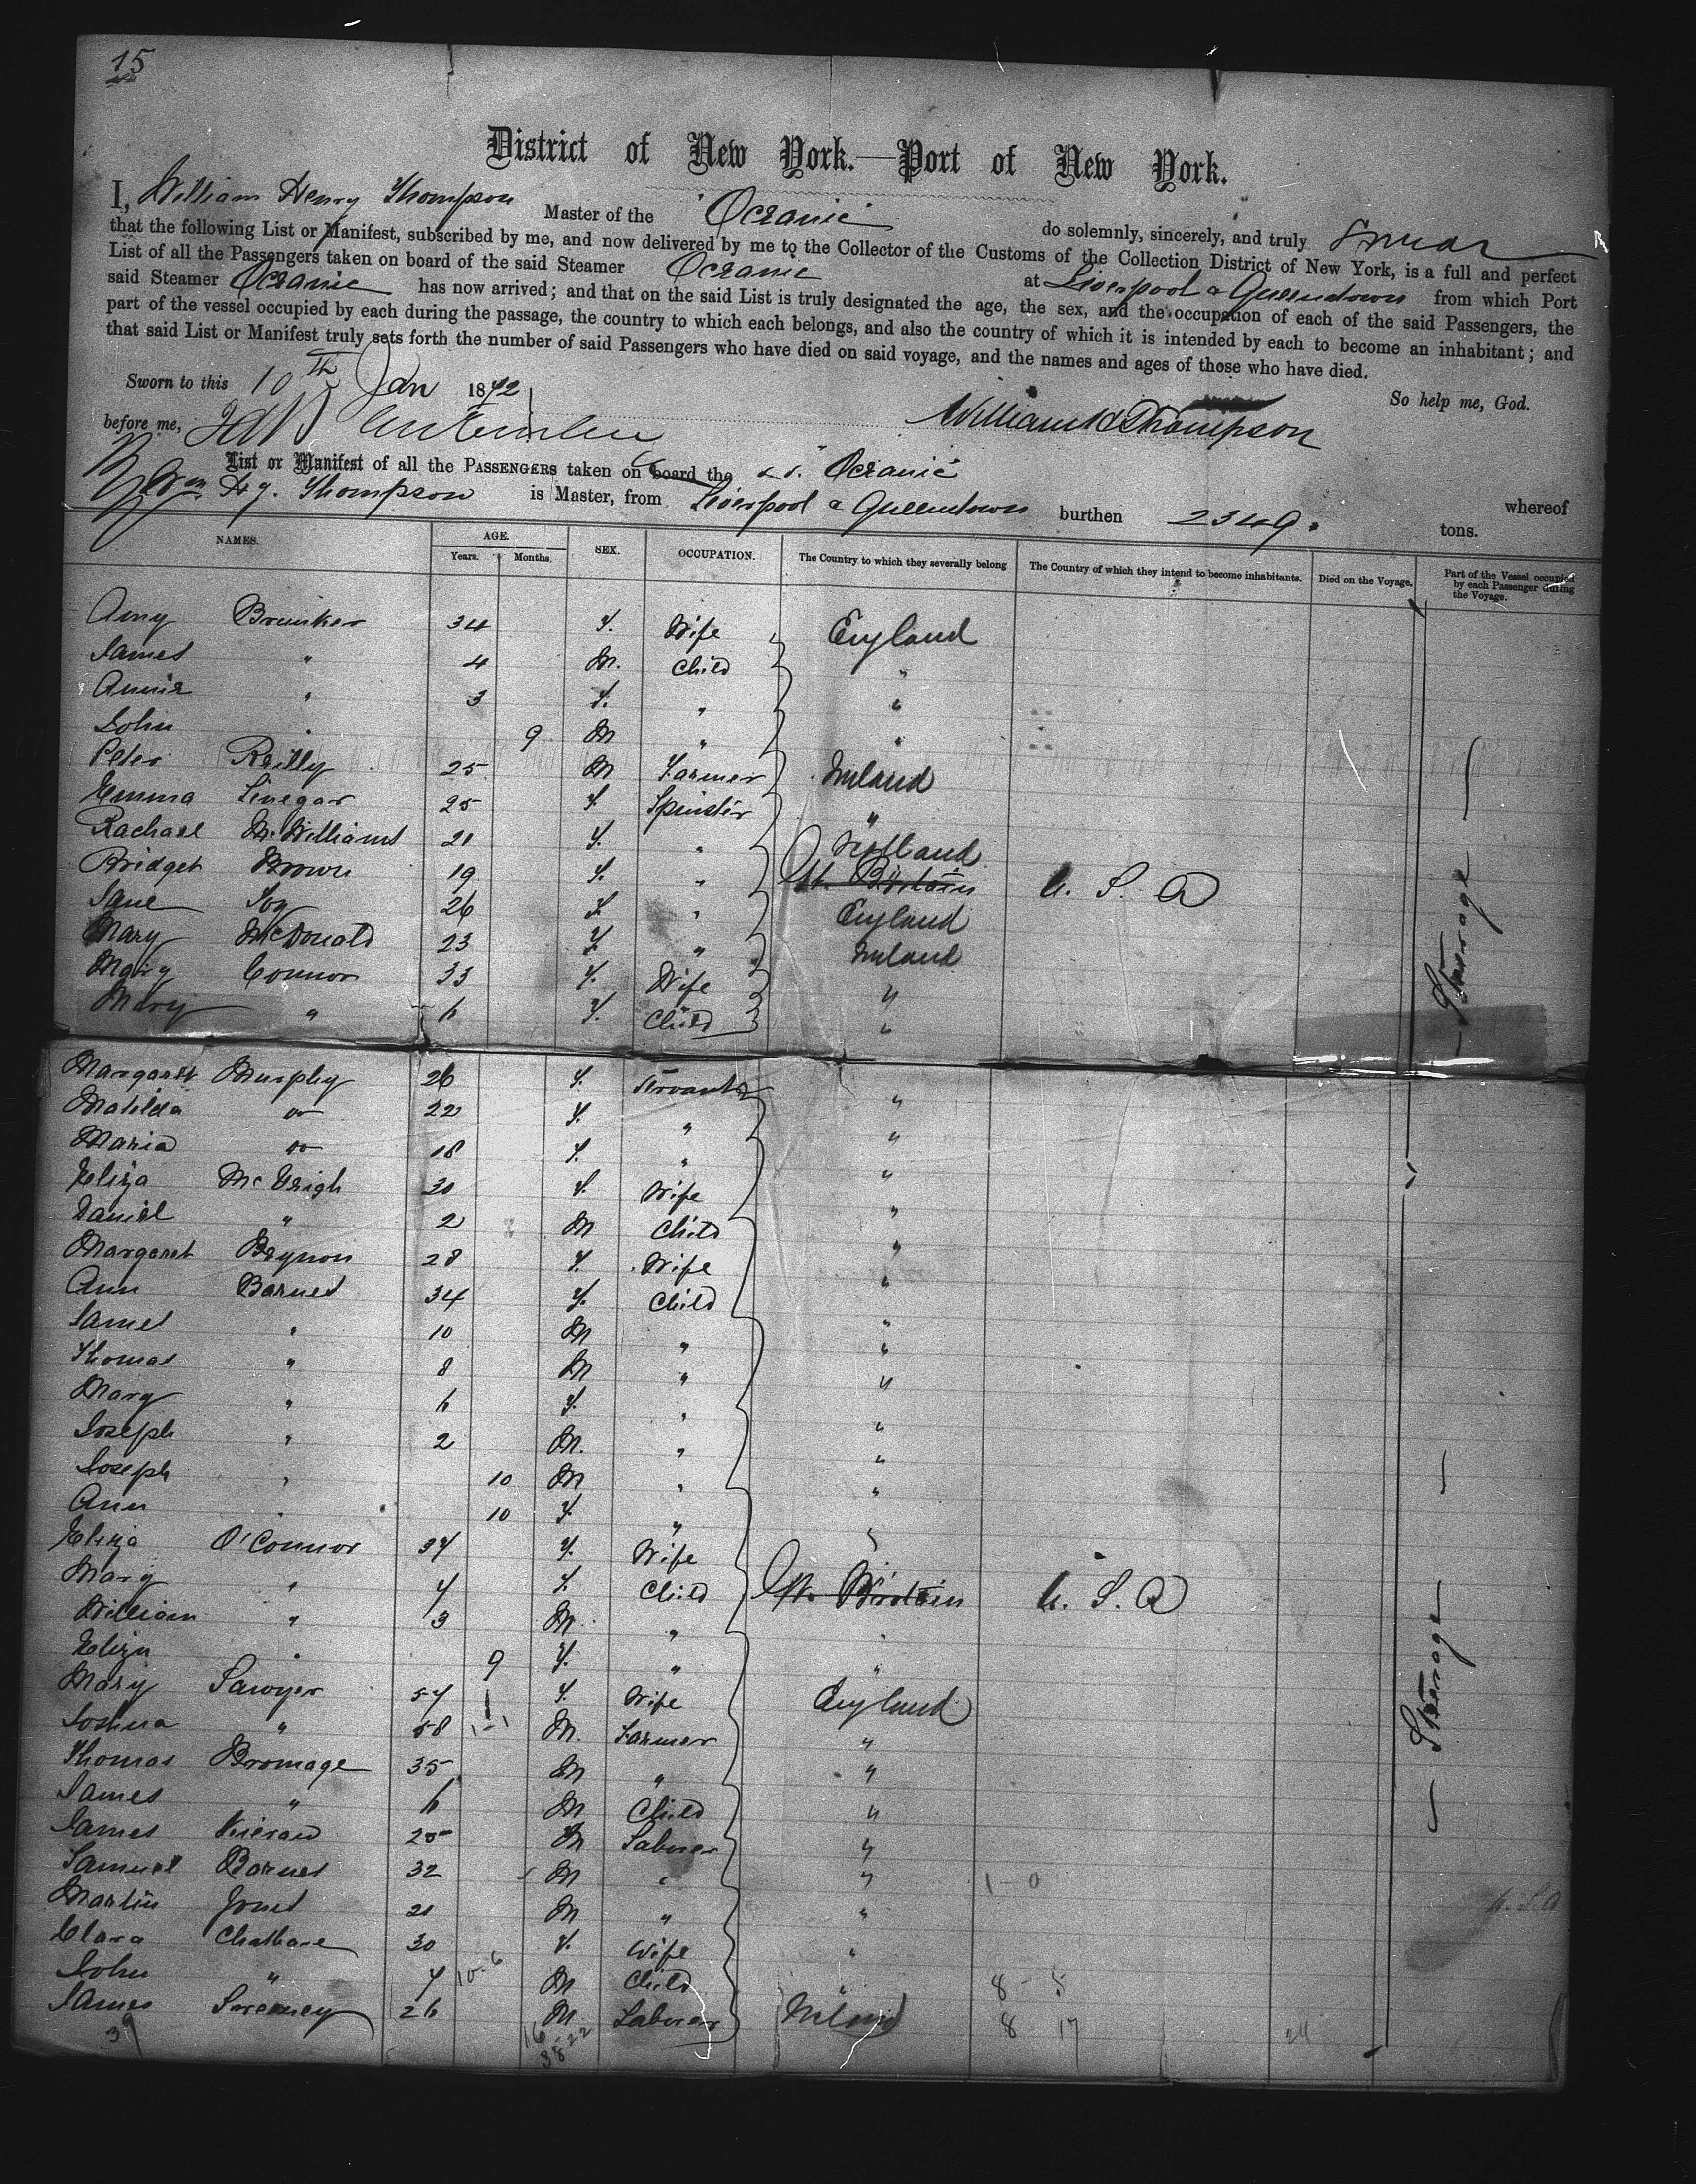 15
District of New York.—Port of New York.
I, William Henry Thompson Master of the "Oceanic" do solemnly, sincerely, and truly swear
that the following List or Manifest, subscribed by me, and now delivered by me to the Collector of the Customs of the Collection District of New York, is a full and perfect
List of all the Passengers taken on board of the said Steamer Oceanic at Liverpool & Queenstown from which Port
said Steamer Oceanic has now arrived; and that on the said List is truly designated the age, the sex, and the occupation of each of the said Passengers, the
part of the vessel occupied by each during the passage, the country to which each belongs, and also the country of which it is intended by each to become an inhabitant; and
that said List or Manifest truly sets forth the number of said Passengers who have died on said voyage, and the names and ages of those who have died.
So help me, God.
Sworn to this 10th Jan 1872
William H Thompson
before me,
List or Manifest of all the PASSENGERS taken on board the s.s. Oceanic whereof
Wm Hy. Thompson is Master, from Liverpool & Queenstown burthen 2349. tons.
NAMES. AGE. SEX. OCCUPATION. The Country to which they severally belong The Country of which they intend to become inhabitants. Died on the Voyage. Part of the Vessel occupied by each Passenger during the Voyage.
Years. Months.
Amy Brunker 34 F. Wife England
James " 4 M. Child "
Annie " 3 F. " "
John " 9 M " "
Peter Reilly 25 M Farmer Ireland
Emma Sinegar 25 F Spinster "
Rachael McWilliams 21 F. " Holland
Bridget Brown 19 F. " Gt. Britain U. S. A
Jane Foy 26 F. " England
Mary McDonald 23 F. " Ireland
Mary Connor 33 F. Wife "
Mary " 6 F. Child "
Steerage
Margaret Murphy 26 F. Servants "
Matilda do 22 F. " "
Maria do 18 F. " "
Eliza McVeigh 30 F. Wife "
Daniel " 2 M Child "
Margaret Beynon 28 F. Wife "
Ann Barnes 34 F. Child
James " 10 M " "
Thomas " 8 M " "
Mary " 6 F. " "
Joseph " 2 M. " "
Joseph " 10 M " "
Ann " 10 F. " "
Eliza O'Connor 34 F. Wife "
Mary " 4 F. Child Gt. Britain U. S. A
William " 3 M. " "
Eliza " 9 F. " "
Mary Sawyer 57 F. Wife England
Joshua " 58 M. Farmer "
Thomas Bromage 35 M " "
James " 6 M Child "
James Kieran 25 M Laborer "
Samuel Barnes 32 M " " 1-0
Martin Jones 21 M " "
Clara Chatbane 30 F. Wife "
John " 4 10-6 M Child " 8 5
James Sweeney 26 M Laborer Ireland 8 17 24
Steerage
U.S.A
39
16-22
38